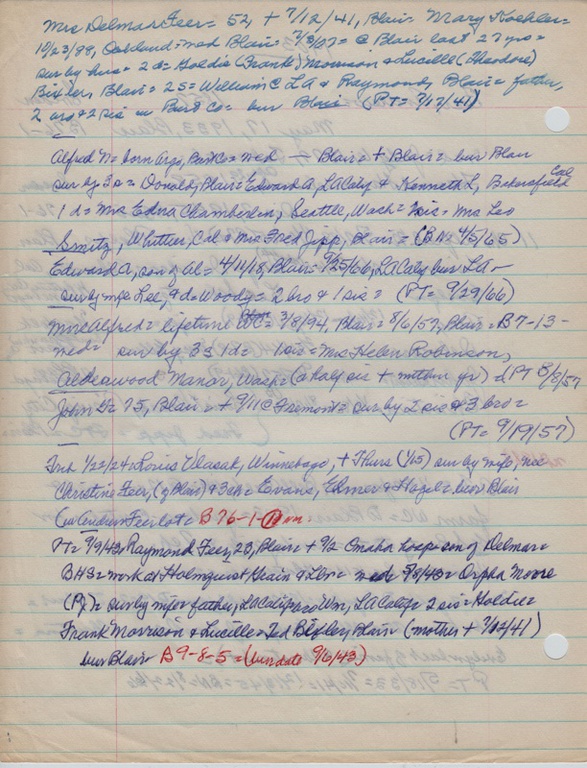 Mrs Delmar Feer = 52, + 7/12/41, Blair = Mary Koehler =
10/23/88, Oakland = med Blair = 7/3/07 = @ Blair last 27 yrs =
sur by hus = 2 d = Goldie (Frank) Morrison & Lucille (Theodore)
Bifler, Blair = 2 S = William @ LA & Raymond, Blair = father,
2 bro & 2 sis in Burt Co = bur Blair (PT = 7/17/41)
Alfred N = born Argo, Burt Co = med — Blair = + Blair = bur Blair
sur by 3 s = Donald, Blair = Edward A, LA Caly & Kenneth L, Bakersfield Cal
1 d = Mrs Edna Chamberlin, Seattle, Wash = 2 sis = Mrs Leo
Smitz, Whittier, Cal = Mrs Fred Jipp, Blair = (BH = 4/5/65)
Edward A, son of Al = 4/11/18, Blair = 9/25/66, LA Caly bur LA —
sur by wife Lee, & d = Woody = 2 bro & 1 sis = (PT = 9/29/66)
Mrs Alfred = lifetime WC = 3/8/94, Blair = 8/6/57, Blair = B7-13-
med = sur by 3 s 1 d = 1 sis = Mrs Helen Robinson,
Alderwood Manor, Wash = (a half sis + mother ) PT 8/8/57
John G = 75, Blair = + 9/11 @ Fremont = sur by 2 sis & 3 bro =
(PT = 9/19/57)
Trib 1/22/24 = Louis Vlasak, Winnebago, + Thurs (1/25) sur by wife, nee
Christine Feer, (of Blair) & 3 ch = Evans, Elmer & Hazel = bur Blair
(in Andrew Feer lot = B 76-1-
PT = 9/9/43, Raymond Feer, 28, Blair = + 9/2 Omaha Hosp = son of Delmar =
BHS = work at Holmquist Grain & Lbr = med 5/8/43 = Orpha Moore
= sur by wife = father, LA Calif = bro Wm, LA Calif = 2 sis = Goldie =
Frank Morrison & Lucille = Ted Bifler, Blair (mother + 7/12/41)
bur Blair B 9-8-5 = (bur date 9/6/43)